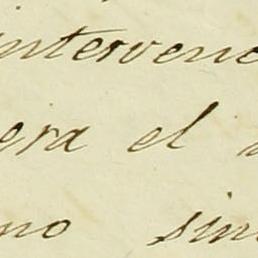 intervenc
era el
no sin